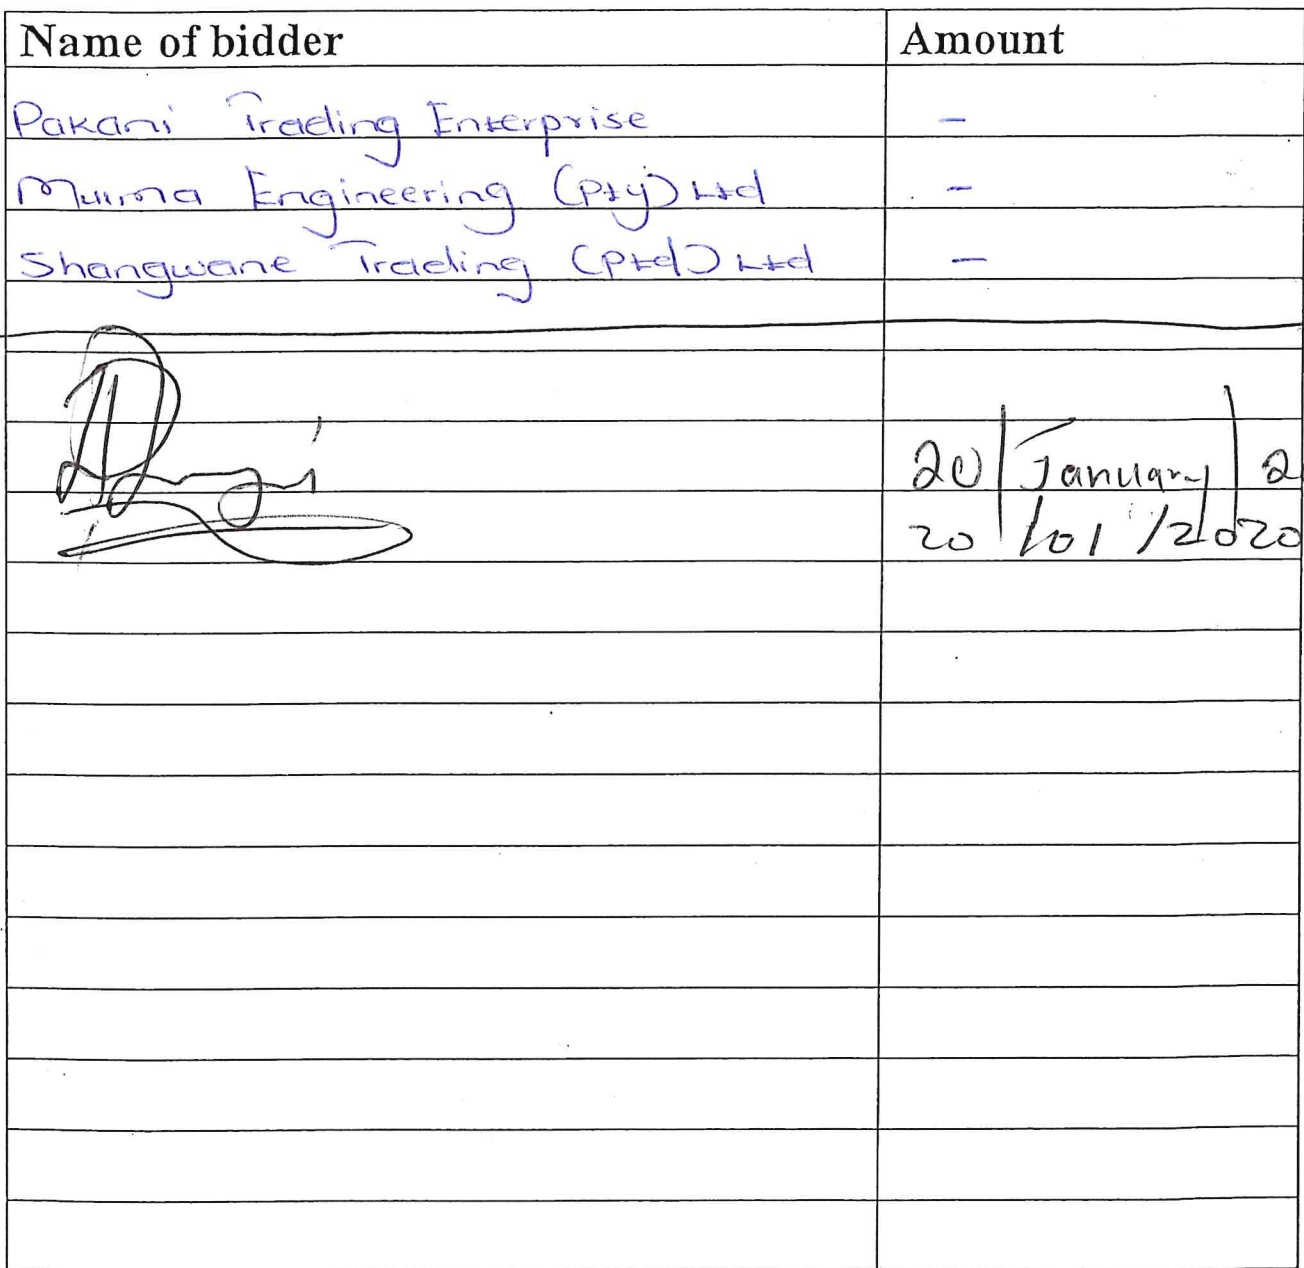 Name of bidder Amount
Pakani Trading Enterprise -
Engineering (Pty) Ltd -
Shangwane Trading (Ptd) Ltd -
20 / January / 2
20 /01 /2020